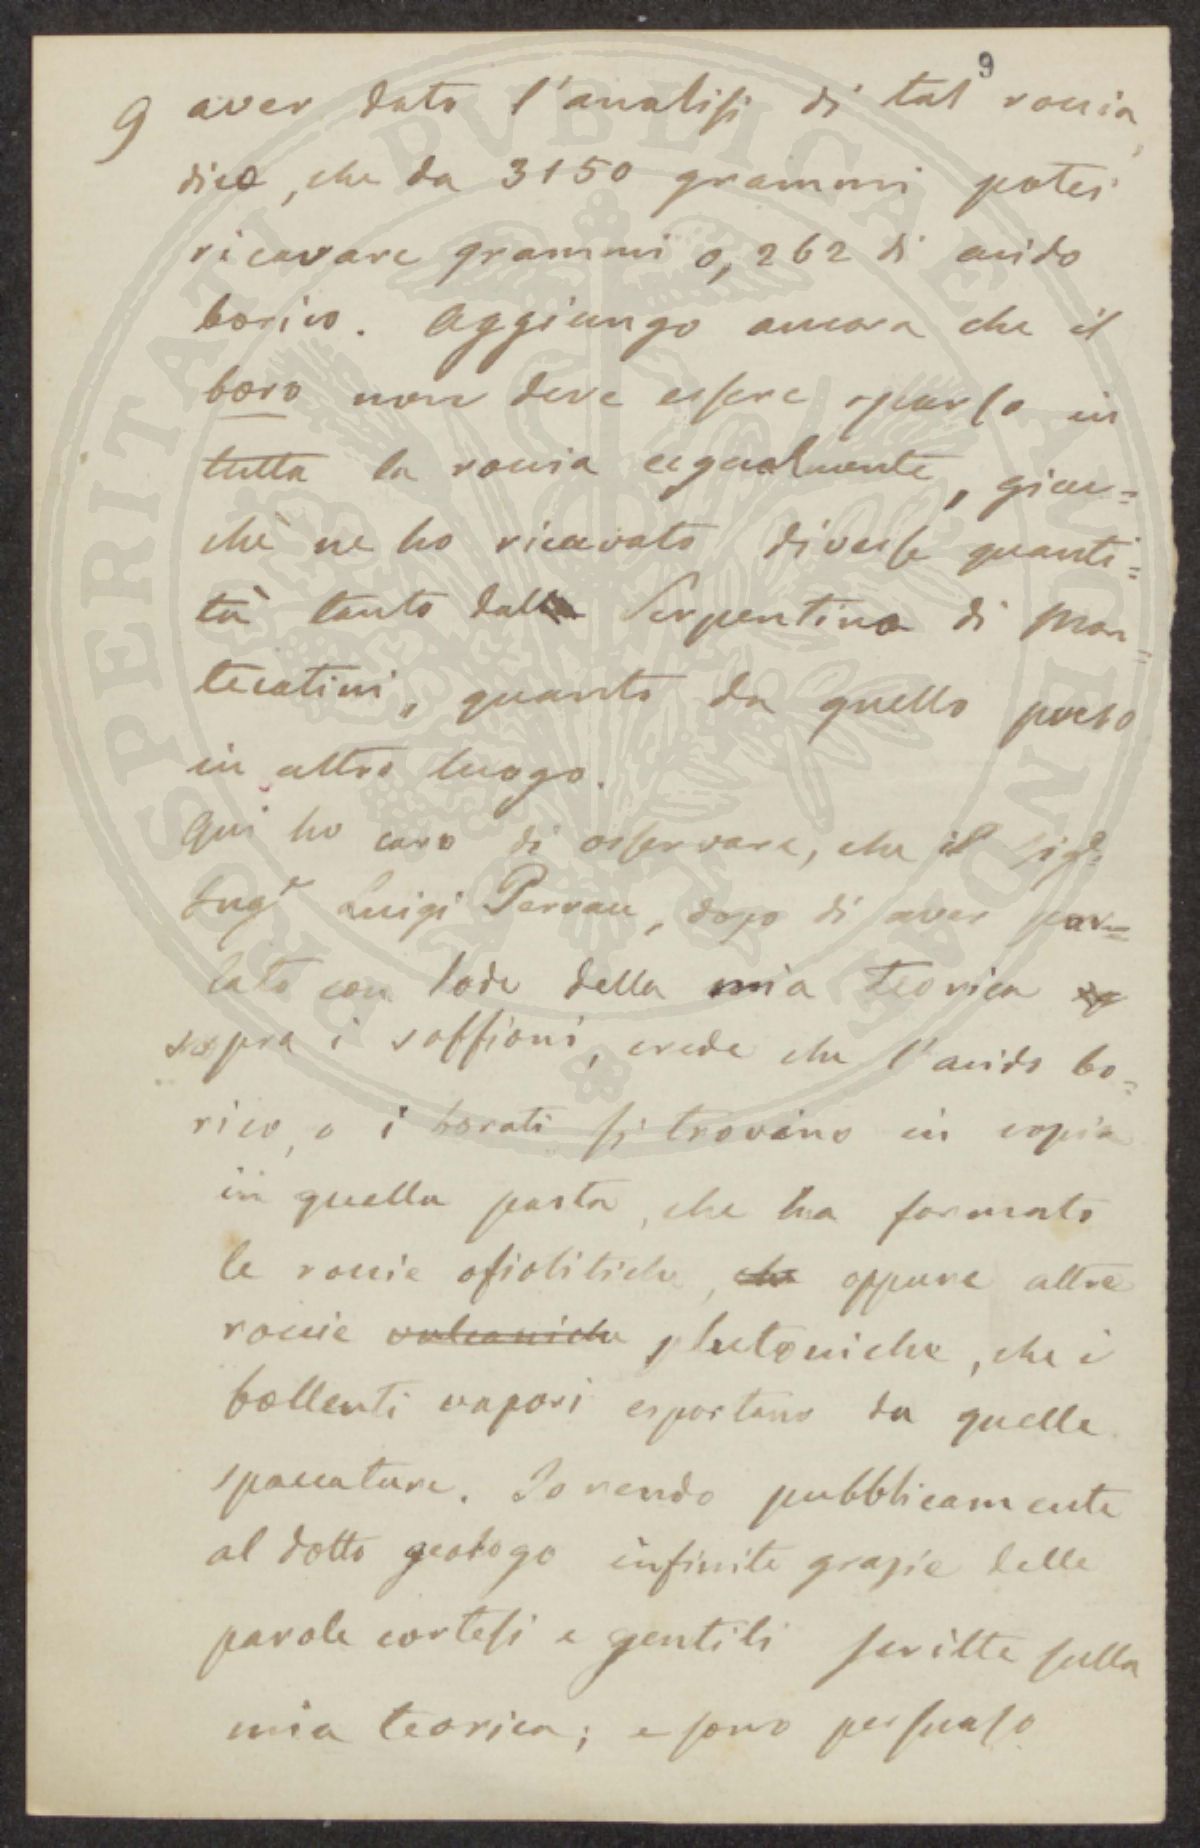 9
9 aver dato l'analisi di tal roccia,
dico, che da 3150 grammi potei
ricavare grammi 0,262 di acido
borico. Aggiungo ancora che il
boro non deve essere sparso in
tutta la roccia egualmente, giac=
chè ne ho ricavato diverse quanti=
tà tanto dalla Serpentina di Mon=
tecatini, quanto da quello preso
in altro luogo.
Qui ho caro di osservare, che il Sigr.
Ingr Luigi Perreau, dopo di aver par=
lato con lode della mia teorica
sopra i soffioni, crede che l'acido bo=
rico, o i borati si trovino in copia
in quella pasta, che ha formato
le roccie ofiolitiche, che oppure altre
roccie vulcaniche plutoniche, che i
bollenti vapori esportano da quelle
spaccature. Io rendo pubblicamente
al dotto geologo infinite grazie delle
parole cortesi e gentili scritte sulla
mia teorica; e sono persuaso
PROSPERITATI PVBLICAE AVGENDAE